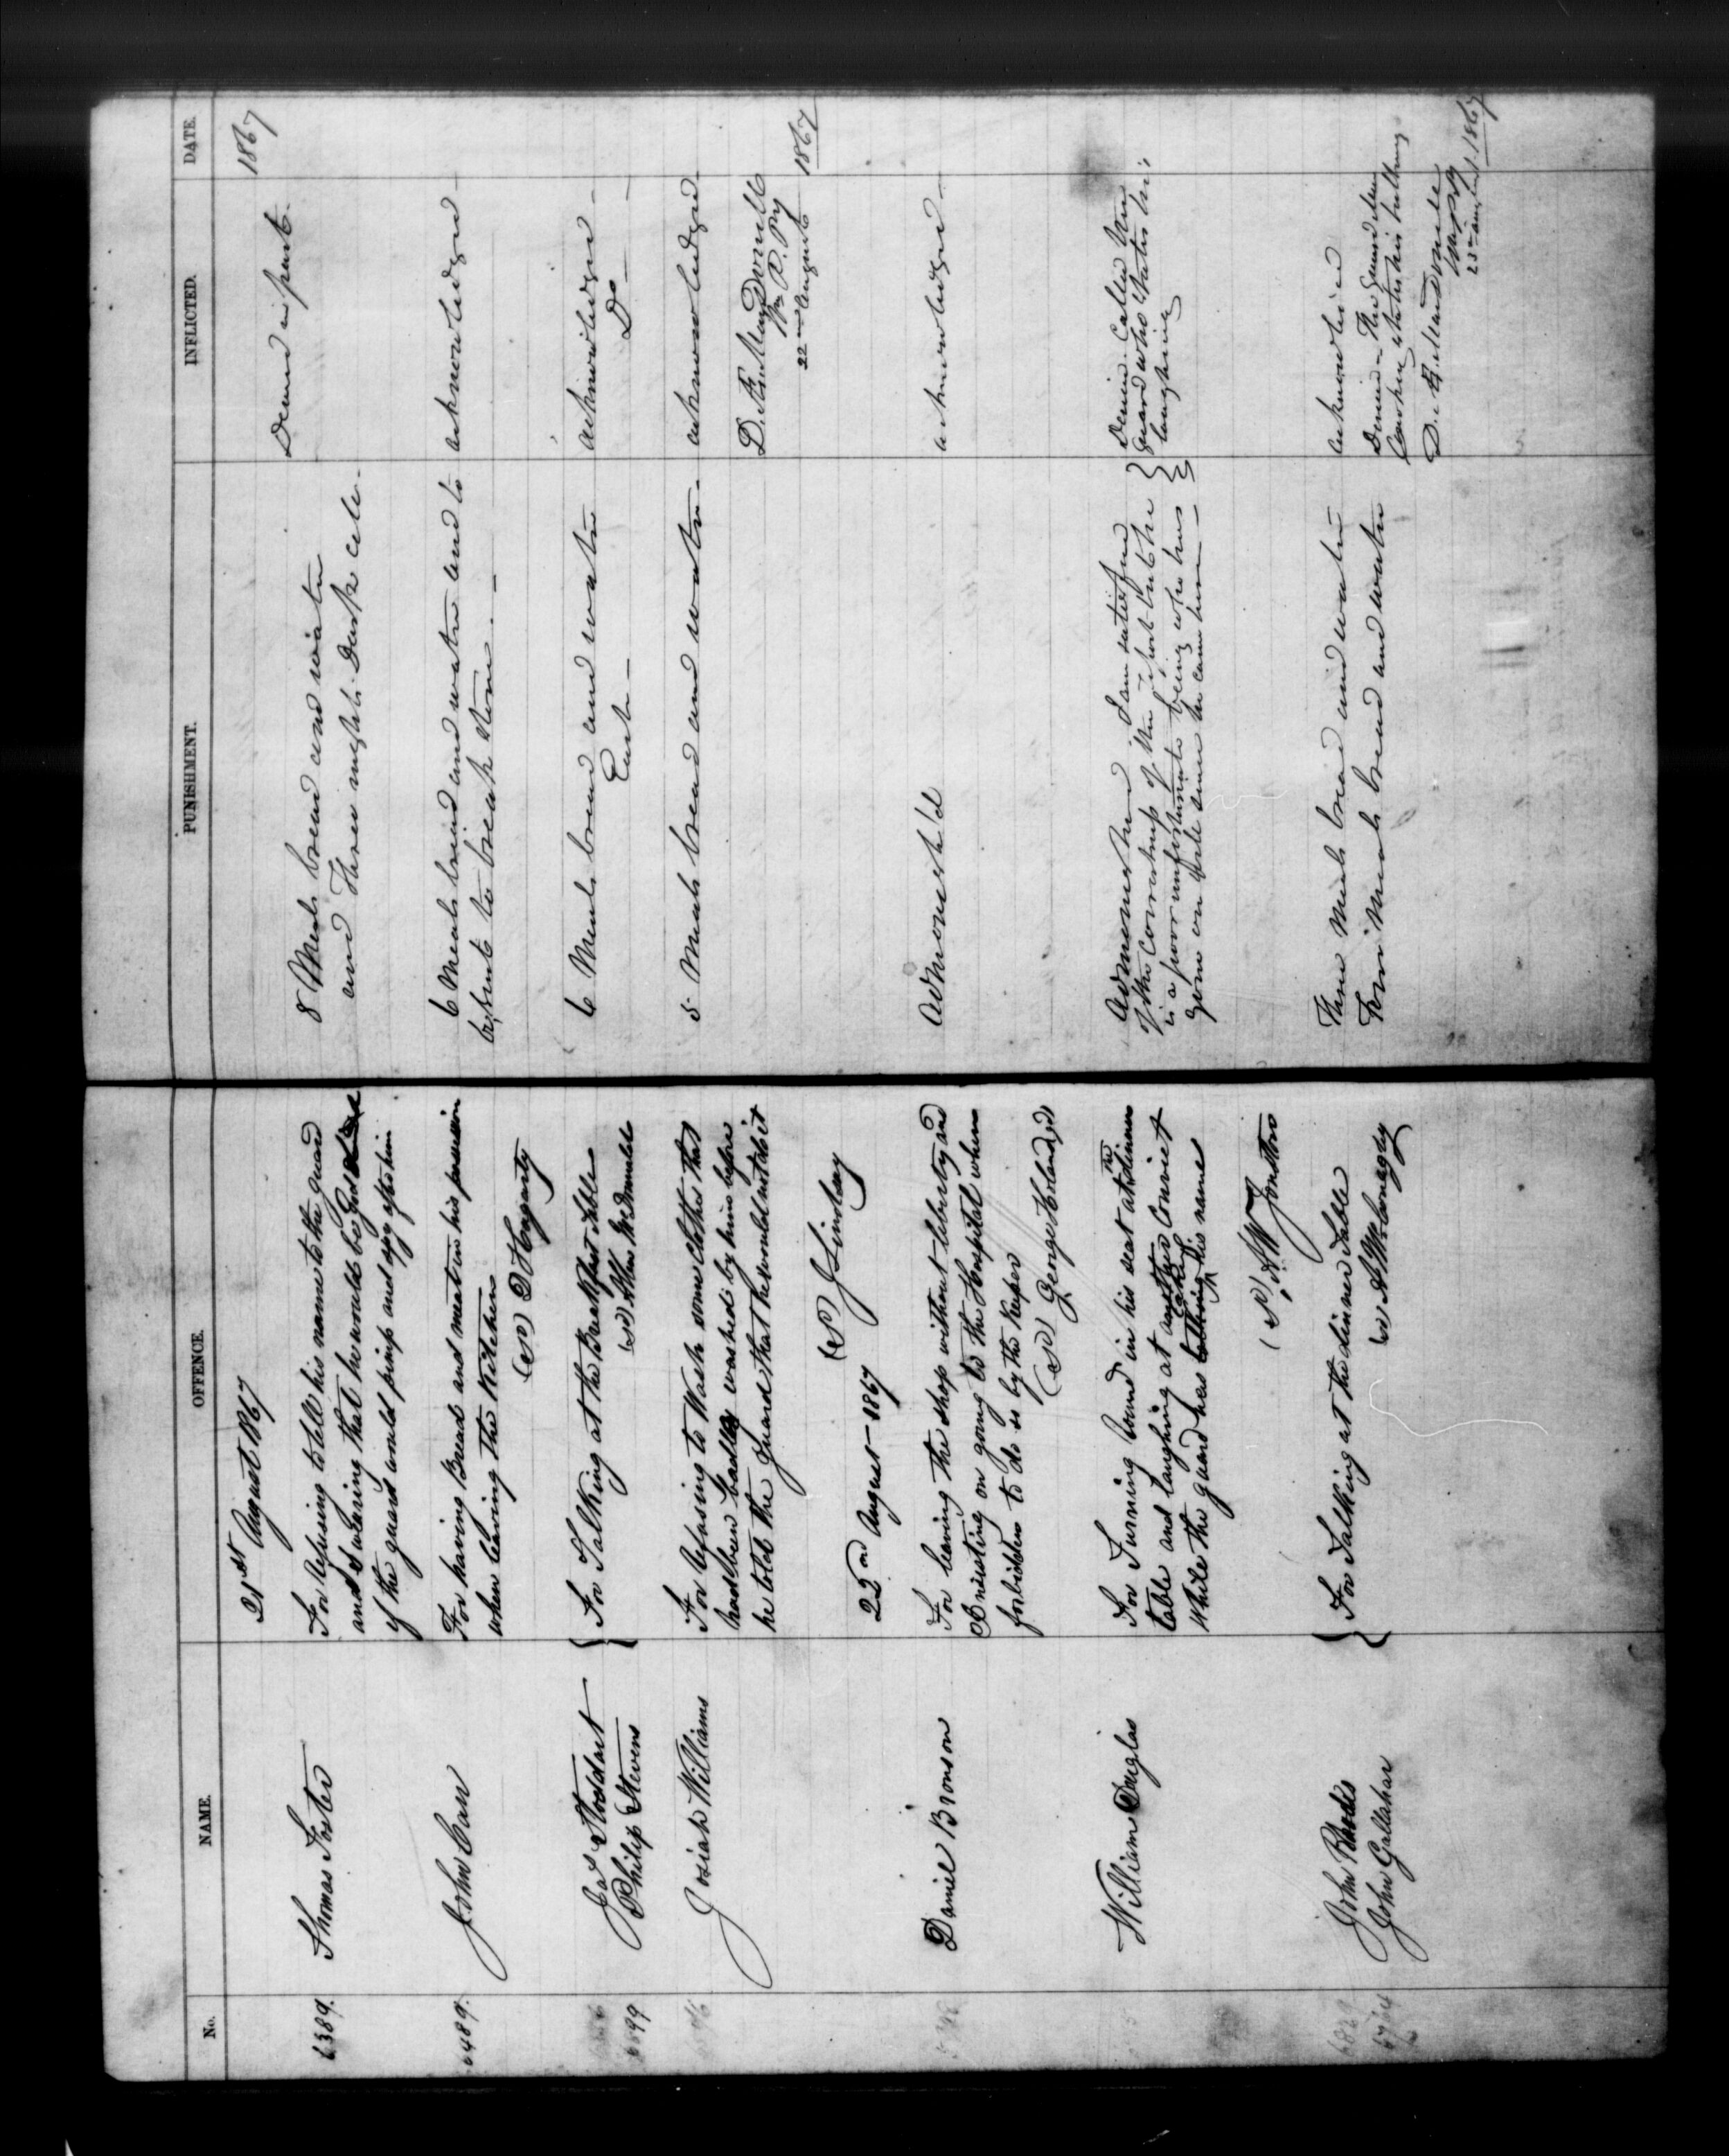 No. NAME. OFFENCE. PUNISHMENT. INFLICTED. DATE.
21st August 1867
1867
6389. Thomas Foster
For refusing to tell his name to the guard
and swearing that he would be God
if the guard would pimp and spy after him
8 Meals bread and water
and Three nights Dark cell.
Denied in part.
6489. John Carr
For having Bread and meat in his possession
when leaving the Kitchen
(S) D Hogarty
6 Meals bread and water and to
be sent to break stone
acknowledged
Jas Stoddart
99 Philip Stevens
For Talking at the Breakfast table
(S) Allan McDonnell
6 Meals bread and water
Each
acknowledged
Do
Josiah Williams
For refusing to Wash some clothes that
had been badly washed by him before
he told the guard that he would not do it
(S) J Lindsay
5 Meals bread and water.
acknowledged
D. Æ. MacDonell
W. P. Py
22nd August 1867
22nd August 1867
Daniel Bronson
For leaving the shop without liberty and
Insisting on going to the Hospital when
forbidden to do so by the Keeper
(S) George Holland
Admonish'd
acknowledged
William Duglas
For Turning round in his seat at the dinner
table and laughing at another Convict
while the guard was taking his name
(S) A W Jonston
Admonished I am satisfied
of the correctness of the report but he
is a poor unfortunate being who has
gone on well since he came here
Denied. Called the
guard who States his
laughing
John Rhodes
John Gallahar
For Talking at the dinner Table
(S) A McConaghy
Three Meals bread and water
Four Meals bread and water
acknowledged
Denied. The guard
states his talking
D. Æ. MacDonell
W P Py
23rd Augt. 1867